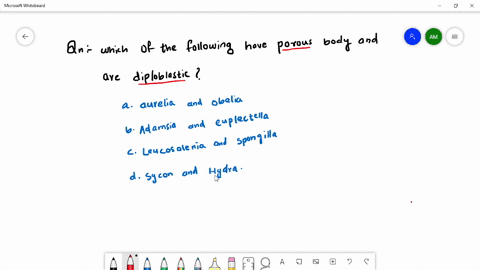 Microsoft Whiteboard
Qn:- which of the following have porous body and
are diploblastic?
a. aurelia and obelia
b. Adamsia and euplectella
c. Leucosolenia and spongilla
d. Sycon and Hydra.
AM